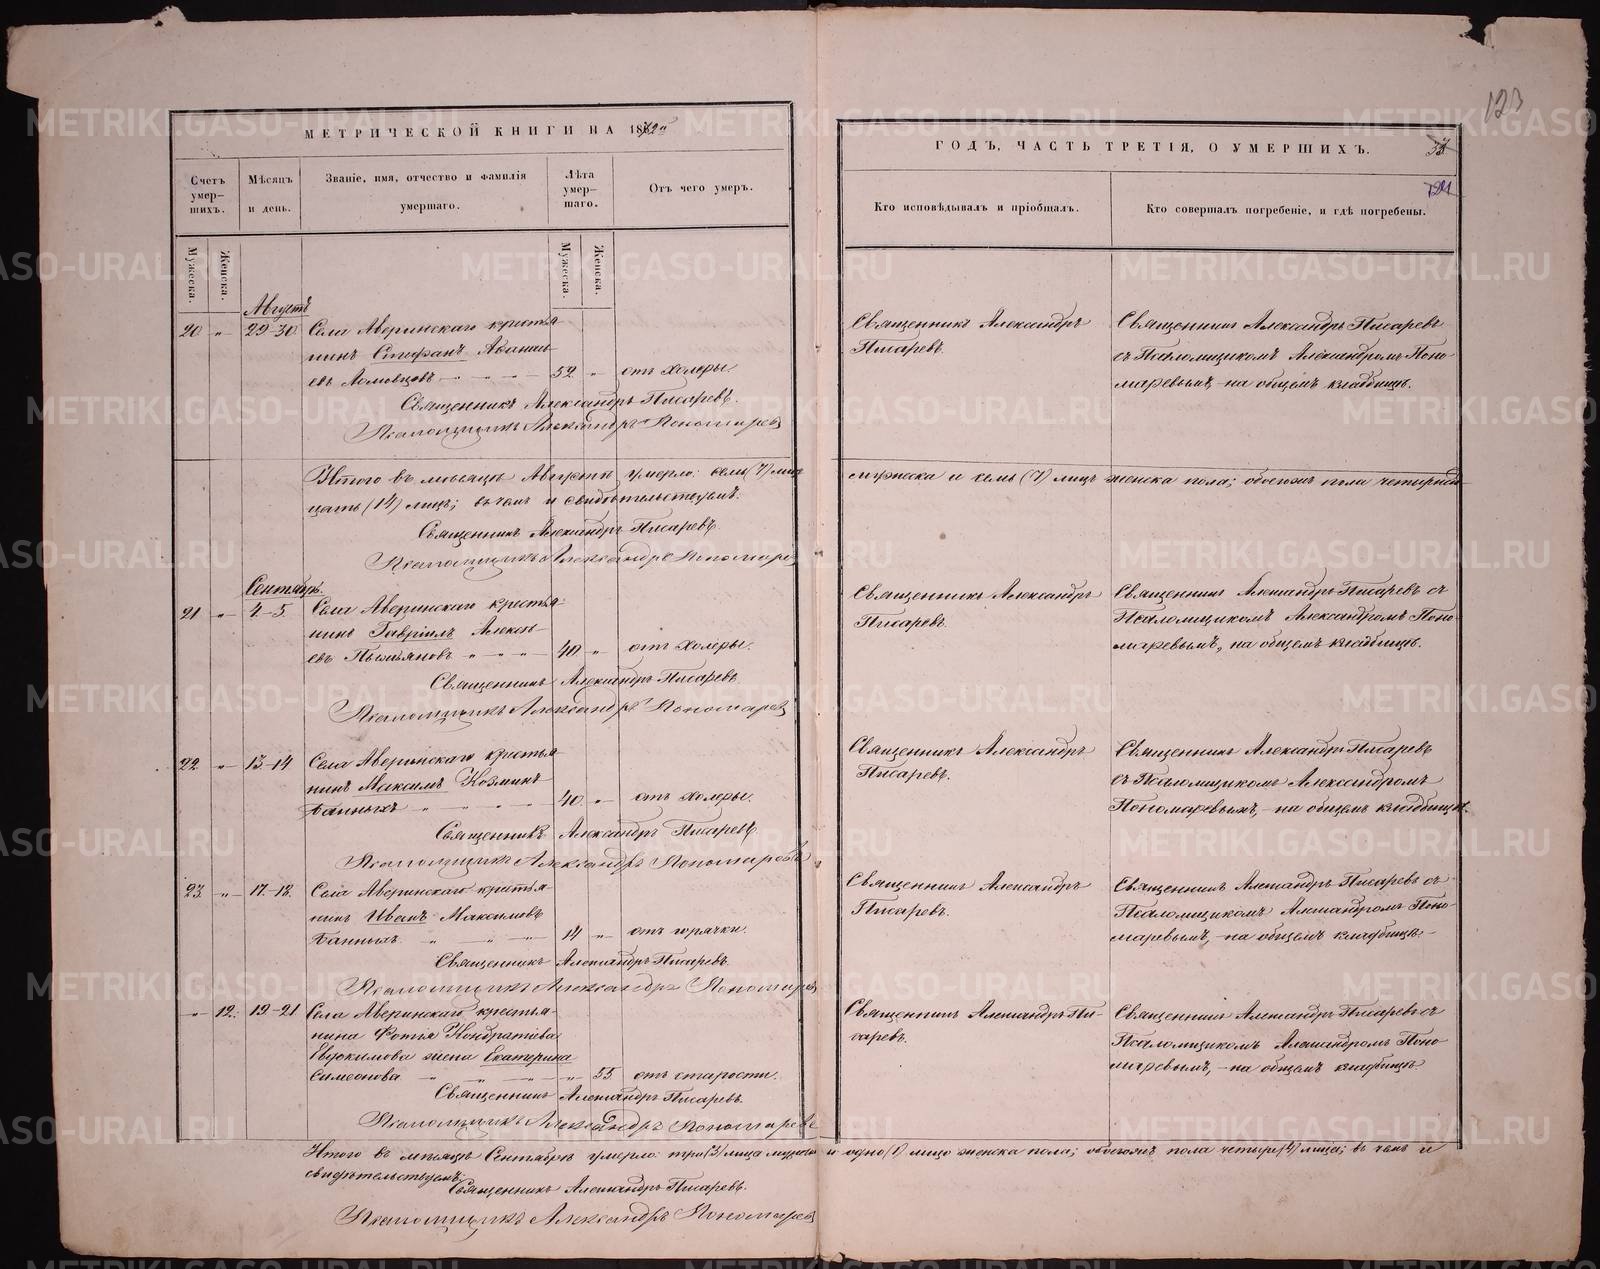 123
МЕТРИЧЕСКОЙ КНИГИ НА 1892й
ГОДЪ, ЧАСТЬ ТРЕТІЯ, О УМЕРШИХЪ.
Счетъ умер-
шихъ.
Мѣсяцъ
и день.
Званіе, имя, отчество и фамилія
умершаго.
Лѣта
умер-
шаго.
Отъ чего умеръ.
Кто исповѣдывалъ и пріобщалъ.
Кто совершалъ погребеніе, и гдѣ погребены.
Мужеска.
Женска.
Мужеска.
Женска.
Августъ
20 „ 29-30 Села Аверинскаго крестья-
нинъ Стефанъ Аѳанась-
евъ Ломовцовъ 52 „ отъ холеры.
Священникъ Александръ
Писаревъ.
Священникъ Александръ Писаревъ
съ Псаломщикомъ Александромъ Поно-
маревымъ, на общемъ кладбищѣ.
Священникъ Александръ Писаревъ.
Псаломщикъ Александръ Пономаревъ
Итого въ мѣсяцѣ Августѣ умерло: семь (7) лицъ мужеска и семь (7) лицъ женска пола; обоего пола четырнад-
цать (14) лицъ; въ чемъ и свидѣтельствуемъ:
Священникъ Александръ Писаревъ.
Псаломщикъ Александръ Пономаревъ
Сентябрь.
21 „ 4-5. Села Аверинскаго крестья-
нинъ Гавріилъ Алексѣ-
евъ 40 „ отъ холеры.
Священникъ Александръ
Писаревъ.
Священникъ Александръ Писаревъ съ
Псаломщикомъ Александромъ Поно-
маревымъ, на общемъ кладбищѣ.
Священникъ Александръ Писаревъ
Псаломщикъ Александръ Пономаревъ
22 „ 13-14 Села Аверинскаго крестья-
нинъ Максимъ Козминъ
Банныхъ 40 „ отъ холеры.
Священникъ Александръ
Писаревъ.
Священникъ Александръ Писаревъ
съ Псаломщикомъ Александромъ
Пономаревымъ, на общемъ кладбищѣ.
Священникъ Александръ Писаревъ.
Псаломщикъ Александръ Пономаревъ
23 „ 17-18. Села Аверинскаго крестья-
нинъ Иванъ Максимовъ
Банныхъ 14 „ отъ горячки.
Священникъ Александръ
Писаревъ.
Священникъ Александръ Писаревъ съ
Псаломщикомъ Александромъ Поно-
маревымъ, на общемъ кладбищѣ.
Священникъ Александръ Писаревъ.
Псаломщикъ Александръ Пономаревъ
„ 12. 19-21 Села Аверинскаго крестья-
нина Фотія Кондратіева
Евдокимова жена Екатерина
Симеонова „ 55 отъ старости.
Священникъ Александръ Пи-
саревъ.
Священникъ Александръ Писаревъ съ
Псаломщикомъ Александромъ Поно-
маревымъ, на общемъ кладбищѣ.
Священникъ Александръ Писаревъ.
Псаломщикъ Александръ Пономаревъ
Итого въ мѣсяцѣ Сентябрѣ умерло: три (3) лица мужеска и одно (1) лицо женска пола; обоего пола четыре (4) лица; въ чемъ и
свидѣтельствуемъ:
Священникъ Александръ Писаревъ.
Псаломщикъ Александръ Пономаревъ
METRIKI.GASO-URAL.RU